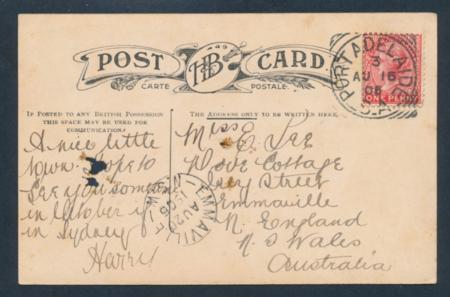 POST CARD
HB
CARTE POSTALE.
IF POSTED TO ANY BRITISH POSSESSION
THIS SPACE MAY BE USED FOR
COMMUNICATION
THE ADDRESS ONLY TO BE WRITTEN HERE.
PORT ADELAIDE
3
AU 16
06
S.A
ONE PENNY
A nice little
town hope to
See you sometime
in October
in Sydney
Harry
Miss E. Lee
Dove Cottage
Street
Emmaville
N. England
N S Wales
Australia
EMMAVILLE
AU 20
1906
N.S.W